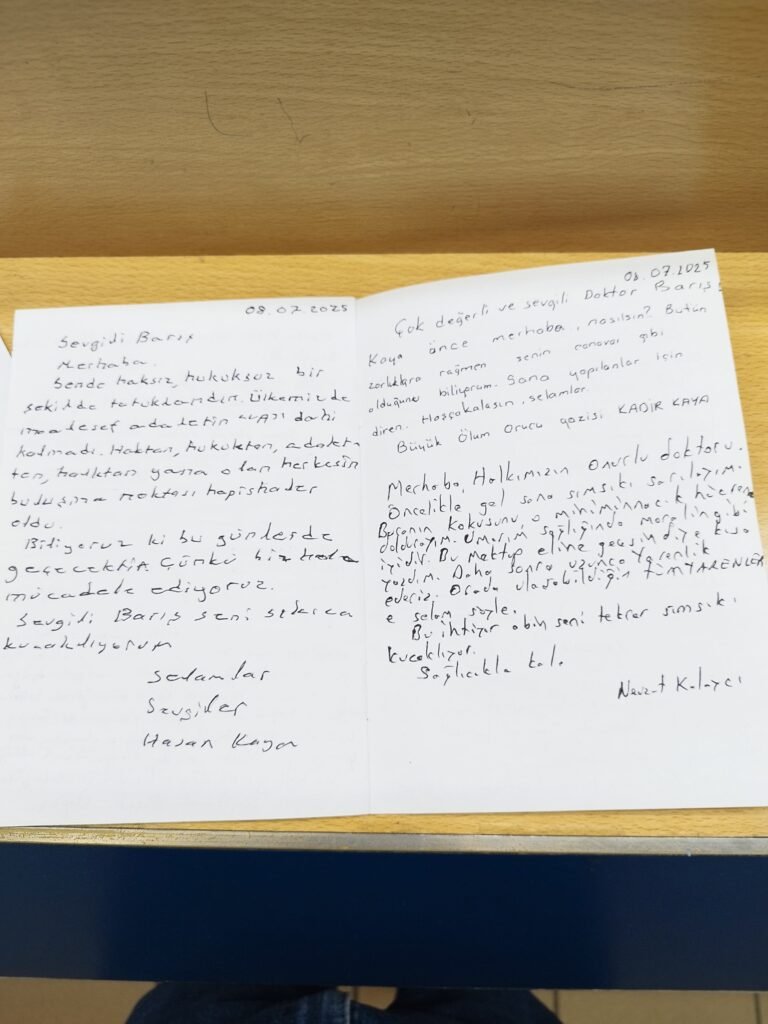 08.07.2025
Sevgili Barış
Merhaba.
Sende haksız, hukuksuz bir
şekilde tutuklandın. Ülkemizde
maalesef adaletin "A"sı dahi
kalmadı. Haktan, hukuktan, adalet
ten, halktan yana olan herkesin
buluşma noktası hapishaneler
oldu.
Biliyoruz ki bu günlerde
geçecektir. Çünkü biz hala
mücadele ediyoruz.
Sevgili Barış seni sıkıca
kucaklıyorum
Selamlar
Sevgiler
Hasan Kaya
08.07.2025
Çok değerli ve sevgili Doktor Barış
Kaya önce merhaba, nasılsın? Bütün
zorluklara rağmen senin canavar gibi
olduğunu biliyorum. Sana yapılanlar için
diren. Hoşçakalasın, selamlar
Büyük Ölüm Orucu gazisi KADİR KAYA
Merhaba, Halkımızın Onurlu doktoru.
Öncelikle gel sana sımsıkı sarılayım.
kokusunu, o miniminnacık hücrene
doldurayım. Umarım sağlığında moralin gibi
iyidir. Bu mektup eline geçsin diye kısa
yazdım. Daha sonra uzunca yarenlik
ederiz. Orada ulaşabildiğin TÜM YARENLER
e selam söyle.
Bu ihtiyar abin seni tekrar sımsıkı
kucaklıyor.
Sağlıcakla kal.
Nevzat Kalaycı